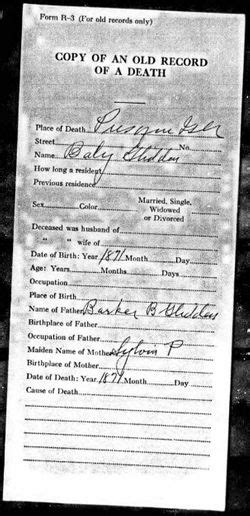 Form R-3 (For old records only)
COPY OF AN OLD RECORD
OF A DEATH
Place of Death Presque Isle
Street No.
Name Baby Glidden
How long a resident
Previous residence
Sex Color Married, Single, Widowed or Divorced
Deceased was husband of
" " wife of
Date of Birth: Year 1871 Month Day
Age: Years Months Days
Occupation
Place of Birth
Name of Father Barker B Glidden
Birthplace of Father
Occupation of Father
Maiden Name of Mother Sylvia P
Birthplace of Mother
Date of Death: Year 1871 Month Day
Cause of Death